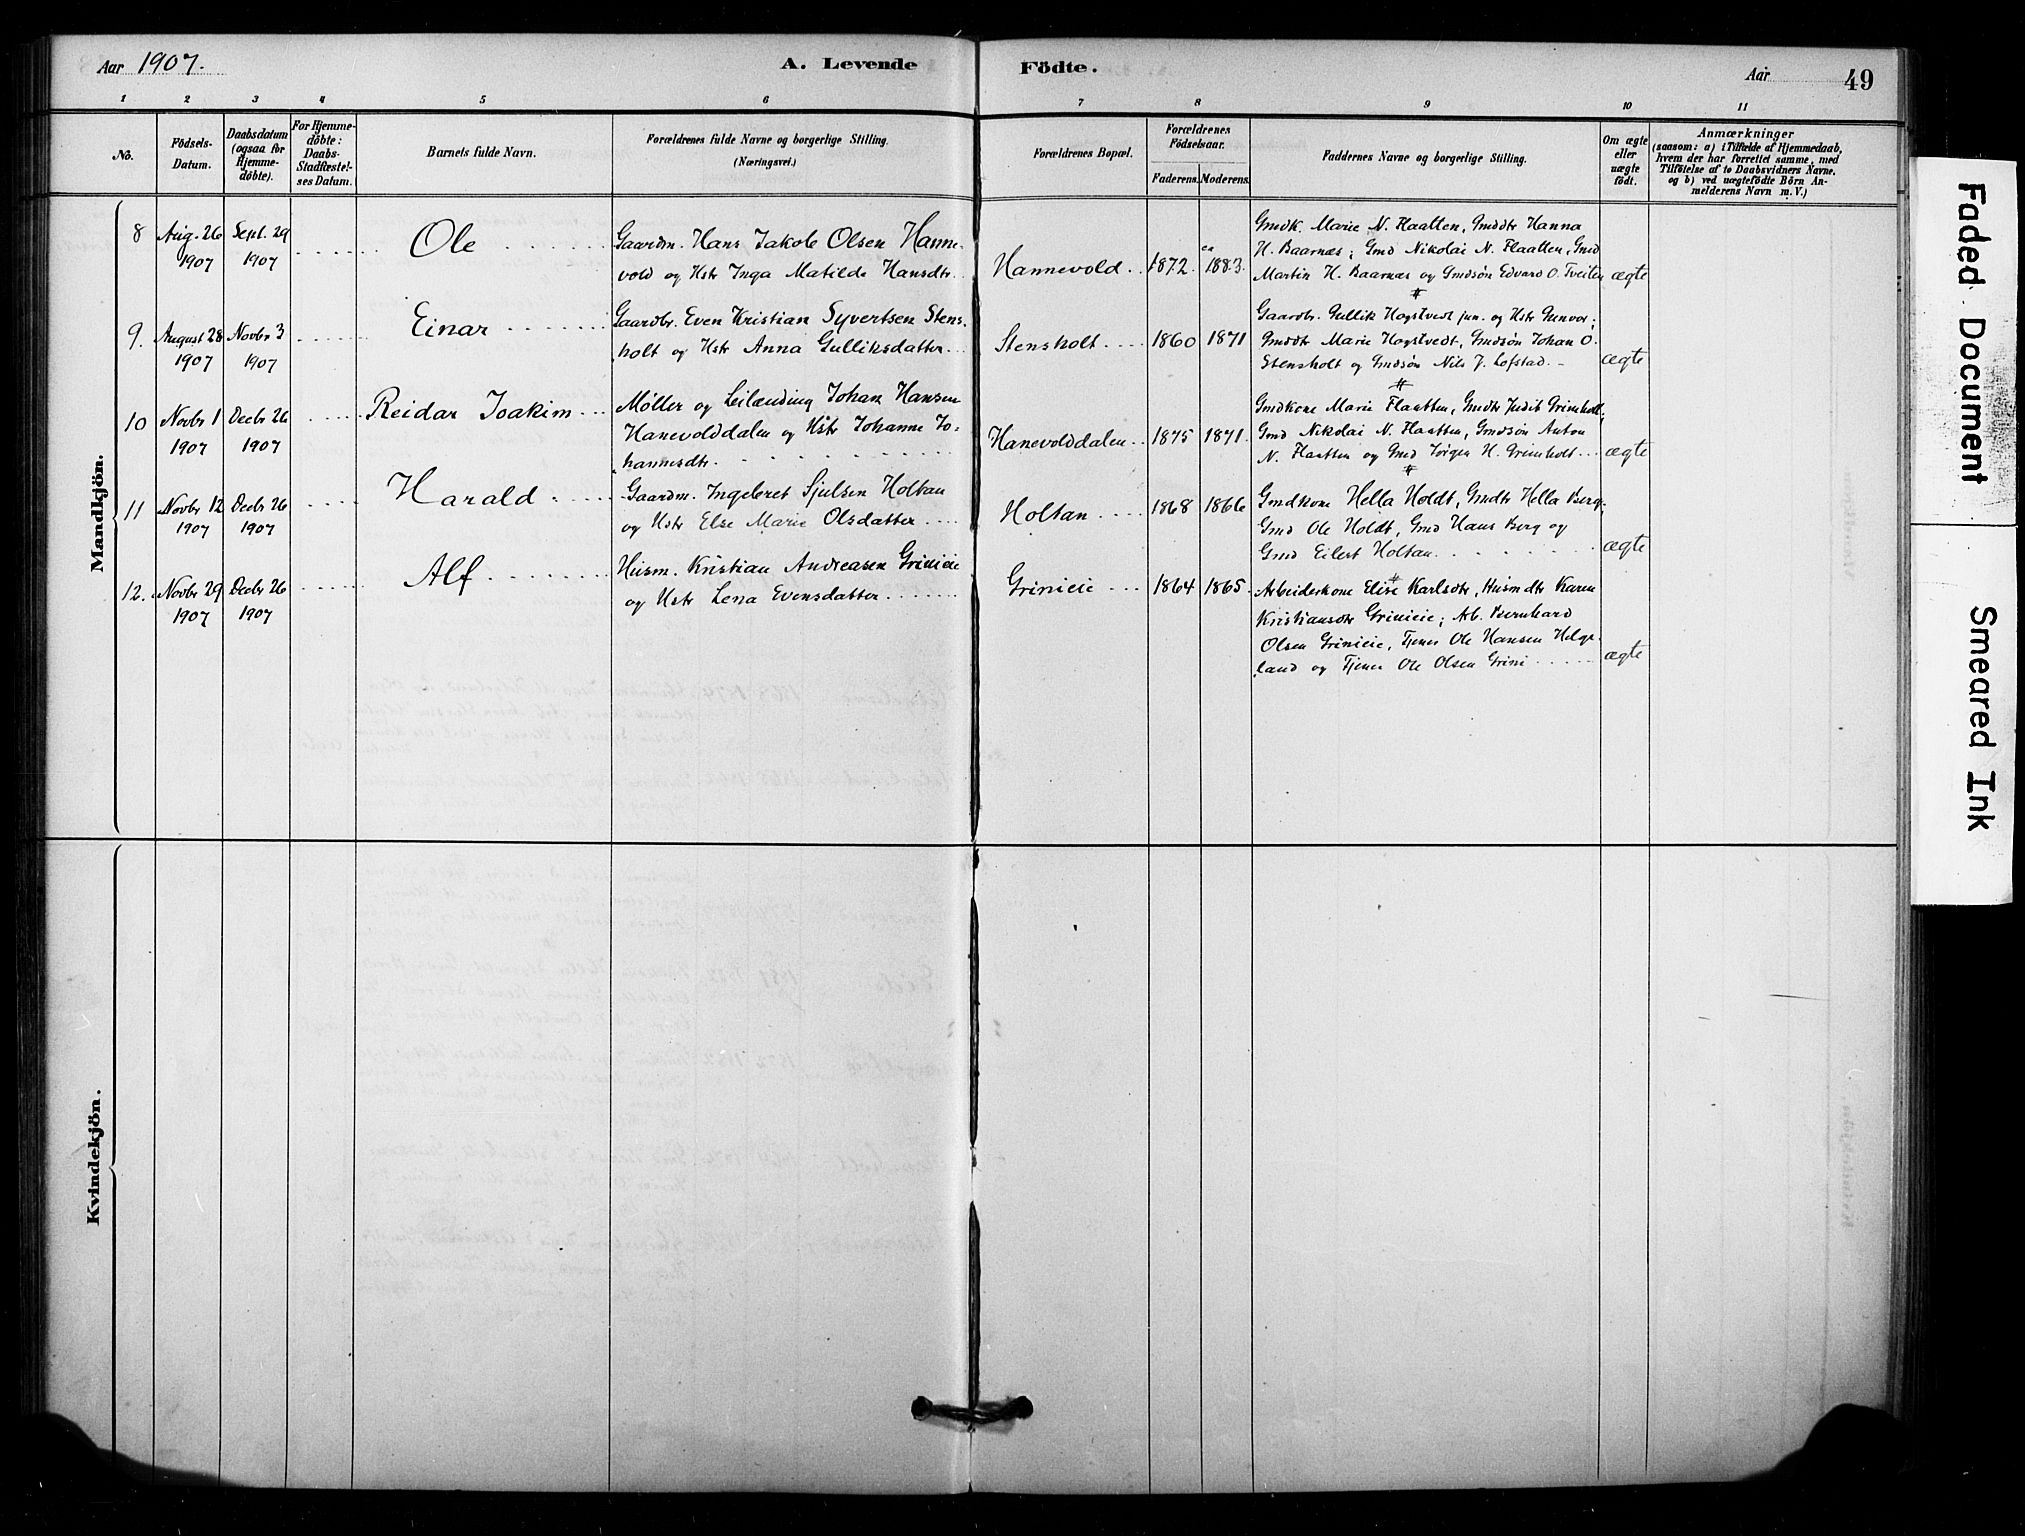 Aar 1907.
A. Levende Födte.
Aar
49
1 2 3 4 5 6 7 8 9 10 11
No.
Födsels-
Datum.
Daabsdatum
(ogsaa for
Hjemme-
døbte).
For Hjemme-
døbte:
Daabs-
Stadfæstel-
ses Datum.
Barnets fulde Navn.
Forældrenes fulde Navne og borgerlige Stilling.
(Næringsvei.)
Forældrenes Bopæl.
Forældrenes
Födselsaar.
Faderens. Moderens.
Faddernes Navne og borgerlige Stilling.
Om ægte
eller
uægte
født.
Anmærkninger
(saasom: a) i Tilfælde af Hjemmedaab,
hvem der har forrettet samme, med
Tilføielse af to Daabsvidners Navne,
og b) ved uægtefødte Börn An-
melderens Navn m. V.)
Mandkjön.
8
Aug. 26
1907
Sept. 29
1907
Ole
Gaardm. Hans Jakob Olsen Hanne-
vold og Hstr Inga Matilde Hansdtr.
Hannevold
1872
ca
1883.
Gmdk. Marie N. Flaatten, Gmddtr Hanna
H. Baarnæs; Gmd Nikolai N. Flaatten, Gmd
Martin H. Baarnæs og Gmdsøn Edvard O. Tveiten
ægte
#
9.
August 28
1907
Novbr 3
1907
Einar
Gaardbr. Even Kristian Syvertsen Stens-
holt og Hstr Anna Gulliksdatter
Stensholt
1860
1871
Gaardbr. Gullik Hogstvedt jun. og Hstr Gunvor;
Gmddtr Marie Hogstvedt, Gmdsøn Johan O.
Stensholt og Gmdsøn Nils J. Lofstad.
ægte
#
10
Novbr 1
1907
Decbr 26
1907
Reidar Joakim
Møller og Leilænding Johan Hansen
Hanevolddalen og Hstr Johanne Jo-
hannesdtr.
Hanevolddalen
1875
1871.
Gmdkone Marie Flaatten, Gmdtr Judit Grimholt;
Gmd Nikolai N. Flaatten, Gmdsøn Anton
N. Flaatten og Gmd Jørgen H. Grimholt
ægte
#
11
Novbr 12
1907
Decbr 26
1907
Harald
Gaardm. Ingebret Sjulsen Holtan
og Hstr Else Marie Olsdatter
Holtan
1868
1866
Gmdkone Hella Holdt, Gmdtr Hella Berg;
Gmd Ole Holdt, Gmd Hans Berg og
Gmd Eilert Holtan.
ægte
#
12.
Novbr 29
1907
Decbr 26
1907
Alf
Husm. Kristian Andreasen Grinieie
og Hstr Lena Evensdatter
Grinieie
1864
1865.
Arbeiderkone Elise Karlsdtr, Husmdtr Karen
Kristiansdtr Grinieie; Arb. Bernhard
Olsen Grinieie, Tjener Ole Hansen Helge-
land og Tjener Ole Olsen Grini
ægte
Kvindekjön.
Faded Document
Smeared Ink